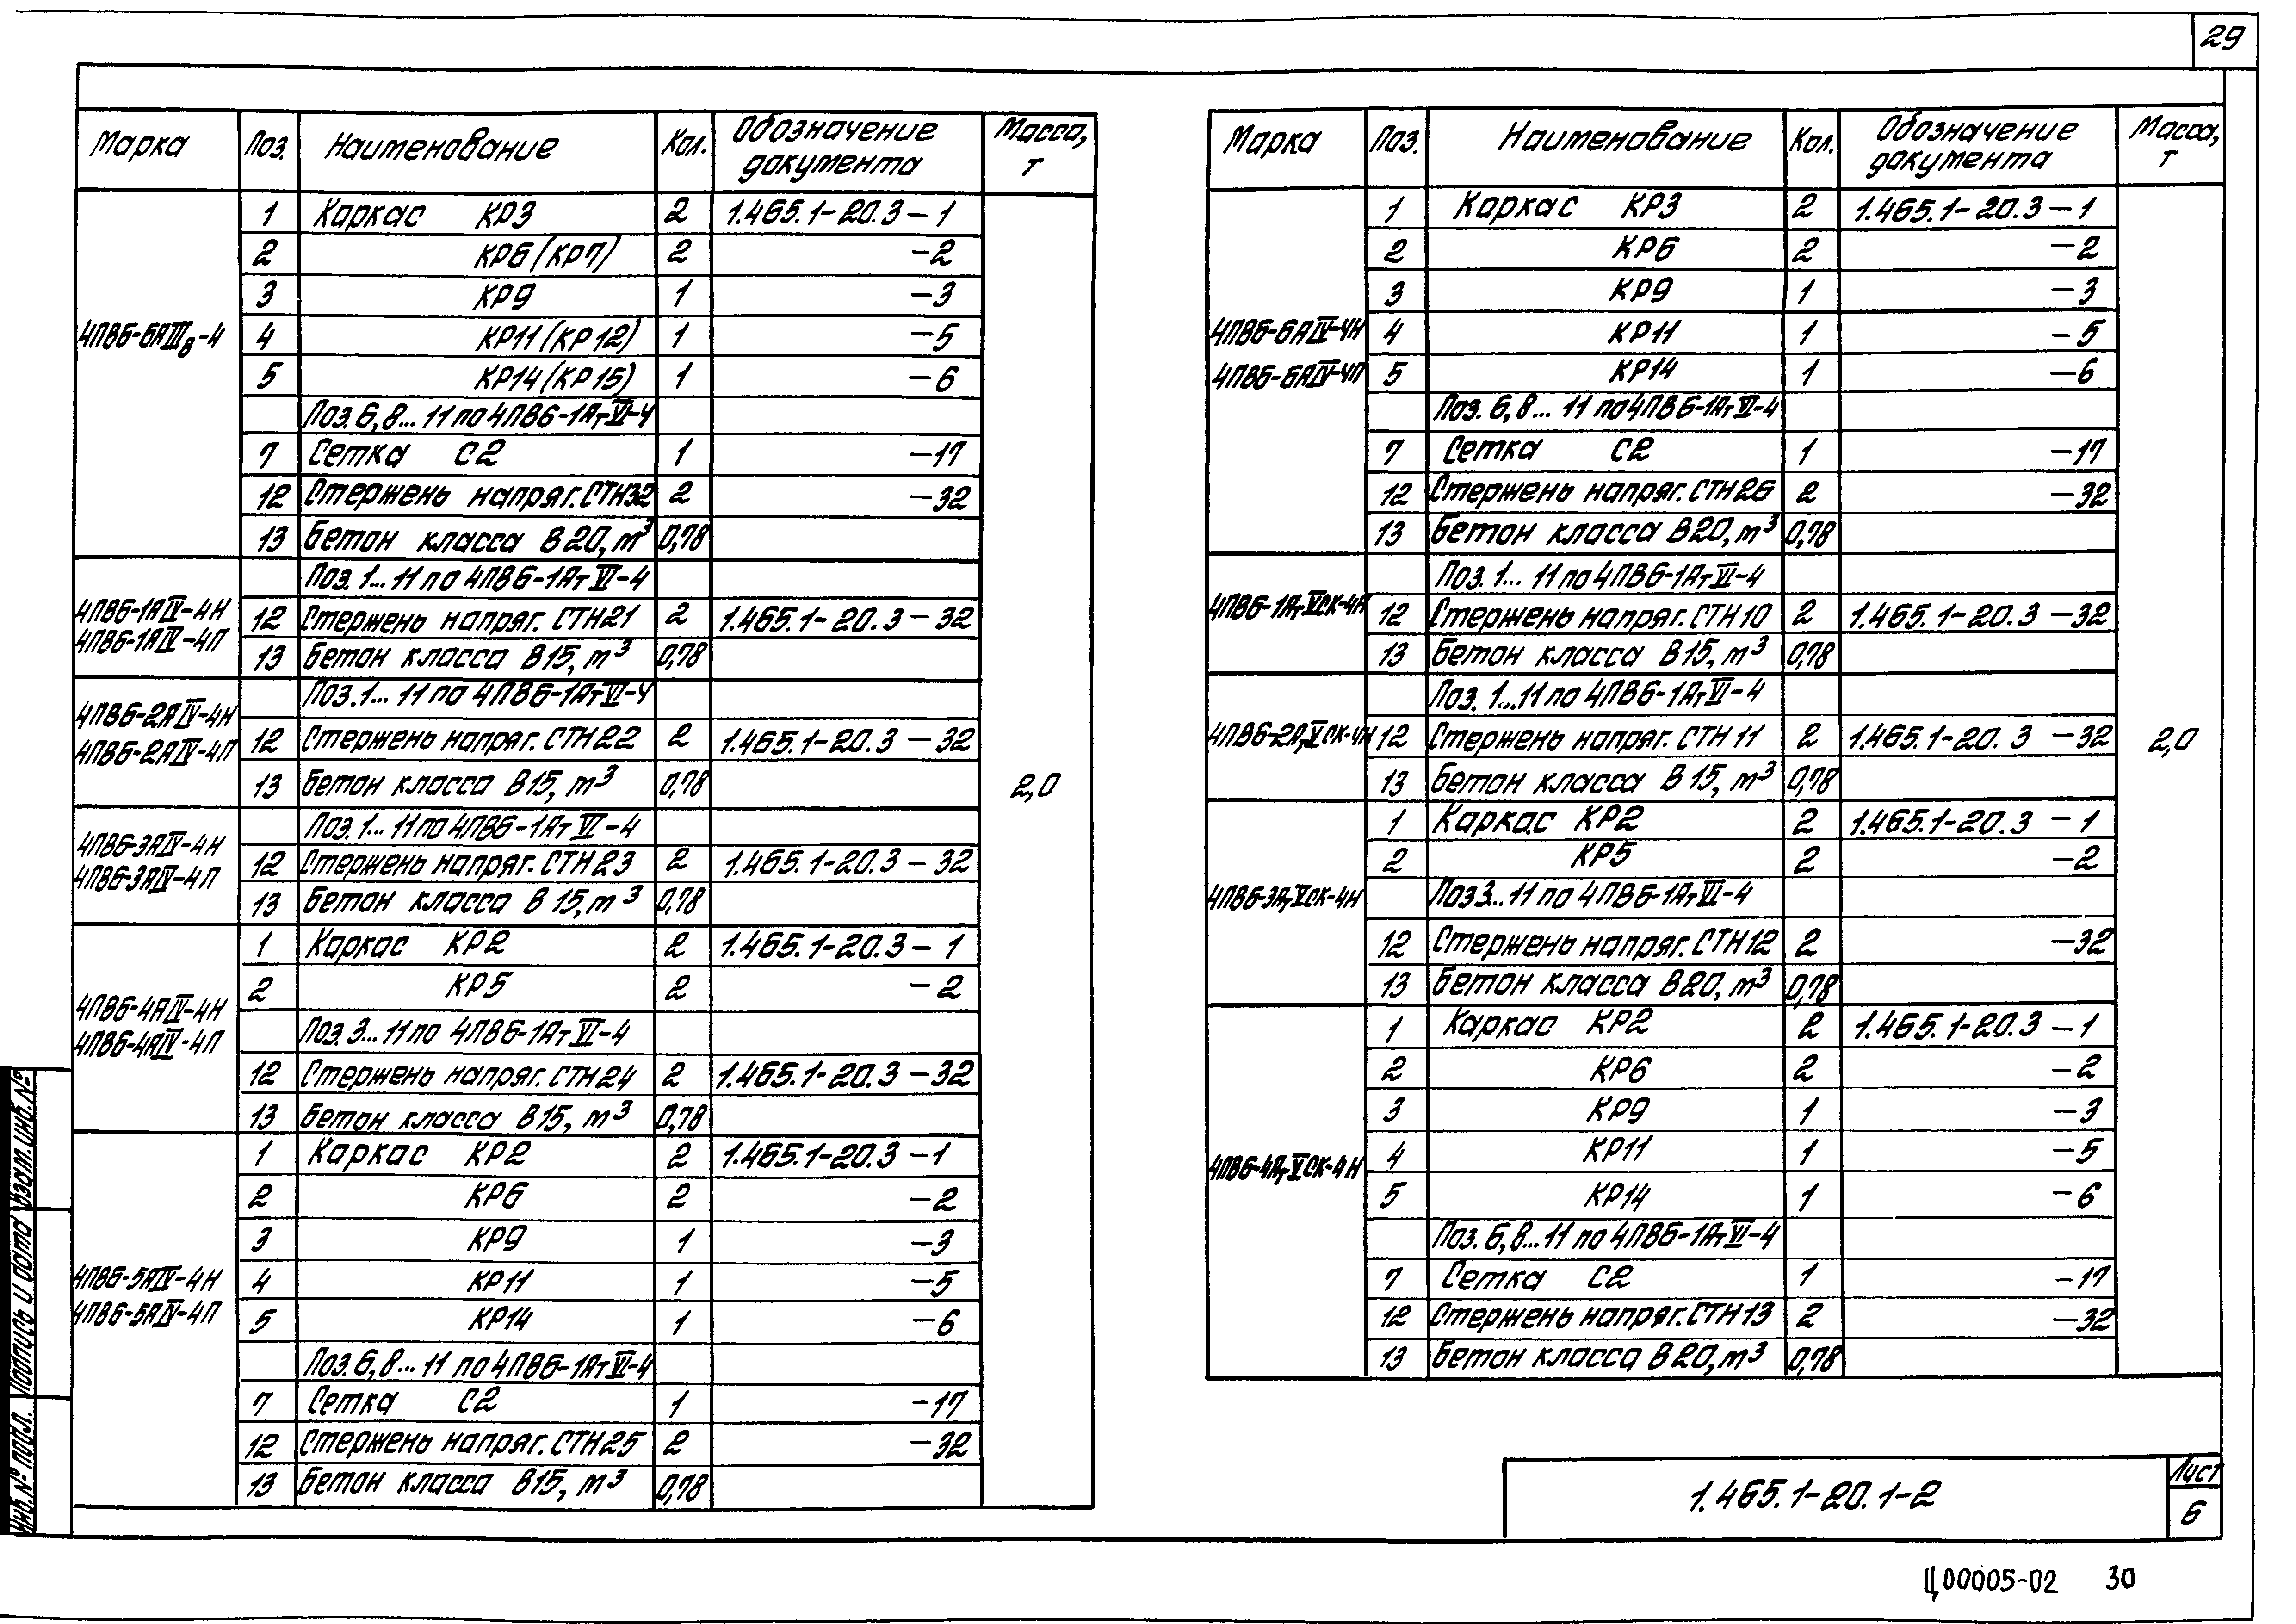 29
Марка Поз. Наименование Кол. Обозначение документа Масса, т
4ПВ6-6АIIIв-4
1 Каркас КР3 2 1.465.1-20.3-1
2 КР6(КР7) 2 -2
3 КР9 1 -3
4 КР11(КР12) 1 -5
5 КР14(КР15) 1 -6
Поз. 6, 8... 11 по 4ПВ6-1АтVI-4
7 Сетка С2 1 -17
12 Стержень напряг. СТН32 2 -32
13 Бетон класса В20, м³ 0,78
4ПВ6-1АIV-4Н
4ПВ6-1АIV-4П
Поз. 1... 11 по 4ПВ6-1АтVI-4
12 Стержень напряг. СТН21 2 1.465.1-20.3-32
13 Бетон класса В15, м³ 0,78
4ПВ6-2АIV-4Н
4ПВ6-2АIV-4П
Поз. 1... 11 по 4ПВ6-1АтVI-4
12 Стержень напряг. СТН22 2 1.465.1-20.3-32
13 Бетон класса В15, м³ 0,78
2,0
4ПВ6-3АIV-4Н
4ПВ6-3АIV-4П
Поз. 1... 11 по 4ПВ6-1АтVI-4
12 Стержень напряг. СТН23 2 1.465.1-20.3-32
13 Бетон класса В15, м³ 0,78
4ПВ6-4АIV-4Н
4ПВ6-4АIV-4П
1 Каркас КР2 2 1.465.1-20.3-1
2 КР5 2 -2
Поз. 3... 11 по 4ПВ6-1АтVI-4
12 Стержень напряг. СТН24 2 1.465.1-20.3-32
13 Бетон класса В15, м³ 0,78
4ПВ6-5АIV-4Н
4ПВ6-5АIV-4П
1 Каркас КР2 2 1.465.1-20.3-1
2 КР6 2 -2
3 КР9 1 -3
4 КР11 1 -5
5 КР14 1 -6
Поз. 6, 8... 11 по 4ПВ6-1АтVI-4
7 Сетка С2 1 -17
12 Стержень напряг. СТН25 2 -32
13 Бетон класса В15, м³ 0,78
Марка Поз. Наименование Кол. Обозначение документа Масса, т
4ПВ6-6АIV-4Н
4ПВ6-6АIV-4П
1 Каркас КР3 2 1.465.1-20.3-1
2 КР6 2 -2
3 КР9 1 -3
4 КР11 1 -5
5 КР14 1 -6
Поз. 6, 8... 11 по 4ПВ6-1АтVI-4
7 Сетка С2 1 -17
12 Стержень напряг. СТН26 2 -32
13 Бетон класса В20, м³ 0,78
4ПВ6-1АтVСК-4Н
Поз. 1... 11 по 4ПВ6-1АтVI-4
12 Стержень напряг. СТН10 2 1.465.1-20.3-32
13 Бетон класса В15, м³ 0,78
4ПВ6-2АтVСК-4Н
Поз. 1... 11 по 4ПВ6-1АтVI-4
12 Стержень напряг. СТН11 2 1.465.1-20.3-32
2,0
13 Бетон класса В15, м³ 0,78
4ПВ6-3АтVСК-4Н
1 Каркас КР2 2 1.465.1-20.3-1
2 КР5 2 -2
Поз 3... 11 по 4ПВ6-1АтVI-4
12 Стержень напряг. СТН12 2 -32
13 Бетон класса В20, м³ 0,78
4ПВ6-4АтVСК-4Н
1 Каркас КР2 2 1.465.1-20.3-1
2 КР6 2 -2
3 КР9 1 -3
4 КР11 1 -5
5 КР14 1 -6
Поз. 6, 8... 11 по 4ПВ6-1АтVI-4
7 Сетка С2 1 -17
12 Стержень напряг. СТН13 2 -32
13 Бетон класса В20, м³ 0,78
Инв.№ подл. Подпись и дата Взам.инв.№
1.465.1-20.1-2
Лист
6
Ц00005-02 30